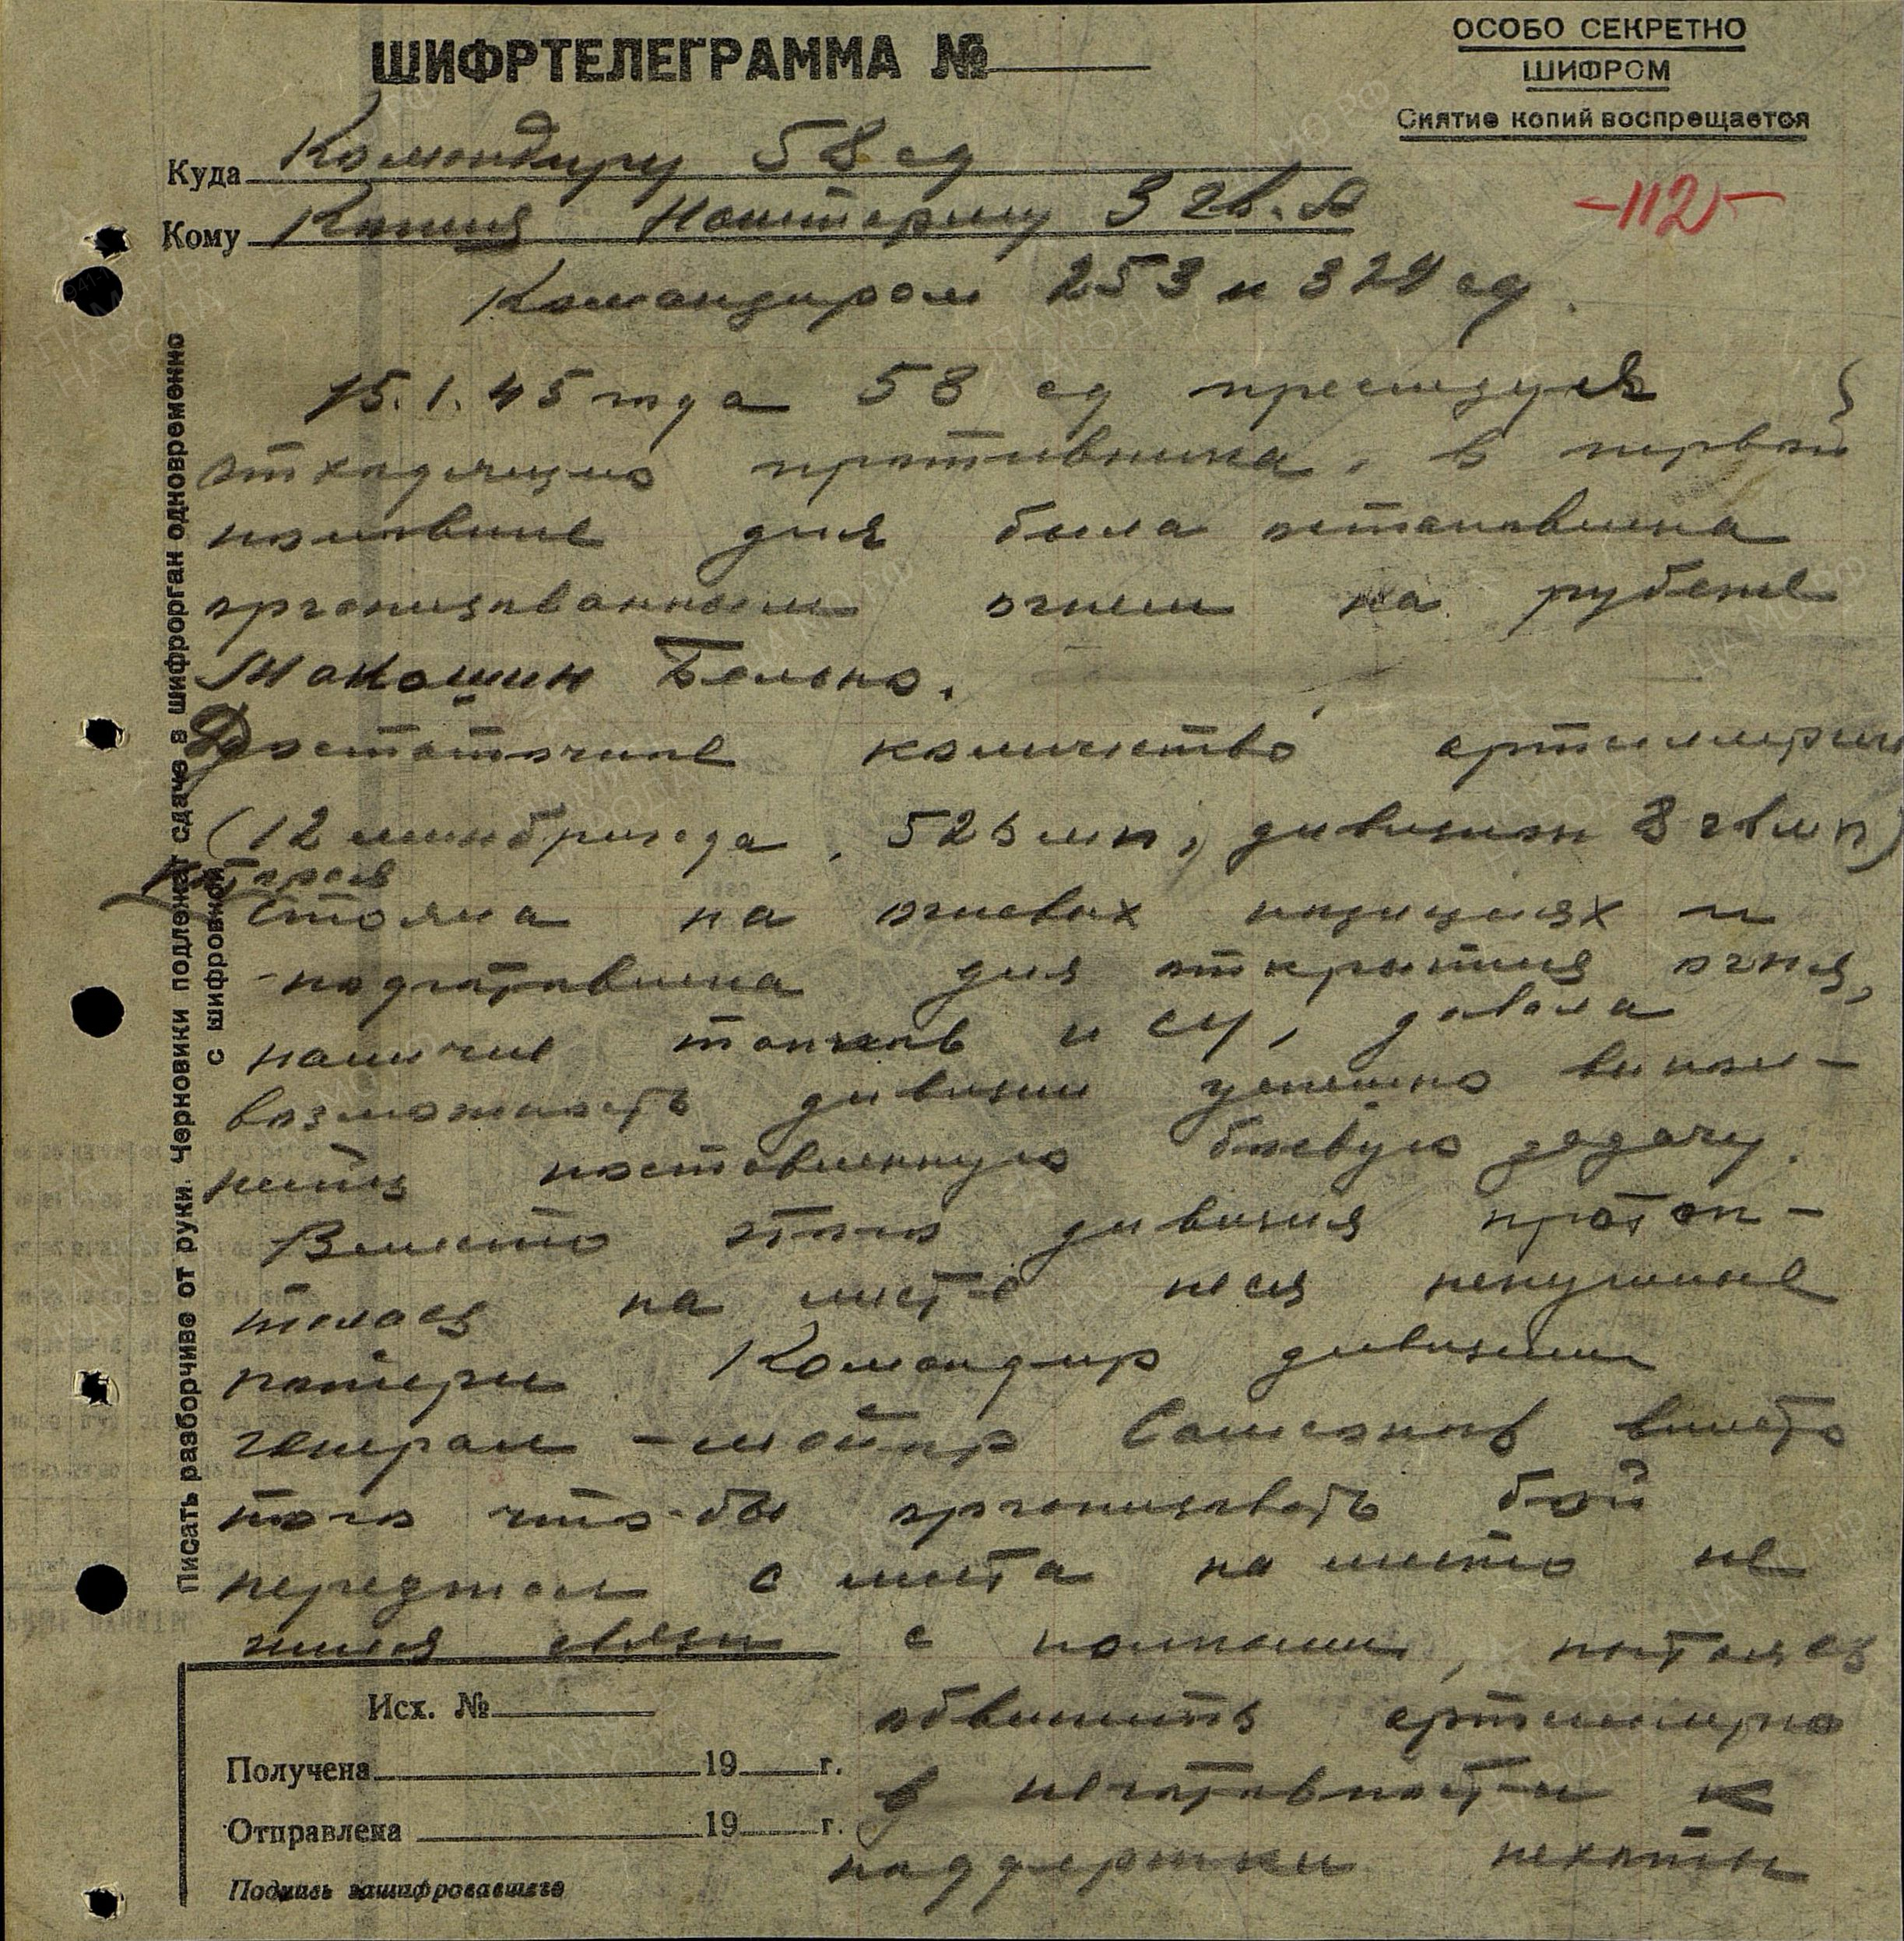 ШИФРТЕЛЕГРАММА №
ОСОБО СЕКРЕТНО
ШИФРОМ
Снятие копий воспрещается
Куда Командиру 58 сд
-112-
Кому Копия Наштарму 3 гв. А
Командирам 253 и 329 сд.
15.1.45 года 58 сд преследуя
отходящего противника, в первой
половине дня была остановлена
организованным огнем на рубеже
Макошин Бельно.
Достаточное количество артиллерии
(12 минбригада, 525 мп, дивизион 3 гвмп)
которая
стояла на огневых позициях и
подготовлена для открытия огня,
наличие танков и СУ, давала
возможность дивизии успешно выпол-
нить поставленную боевую задачу.
Вместо этого дивизия протоп-
талась на месте неся ненужные
потери. Командир дивизии
генерал-майор Самсонов вместо
того что-бы организовать бой
переезжал с места на место не
имея связи с полками, пытаясь
обвинить артиллерию
в неготовности к
поддержки пехоты
Исх. №
Получена 19 г.
Отправлена 19 г.
Подпись зашифровавшего
Писать разборчиво от руки. Черновики подлежат сдаче в шифрорган одновременно
с шифровкой